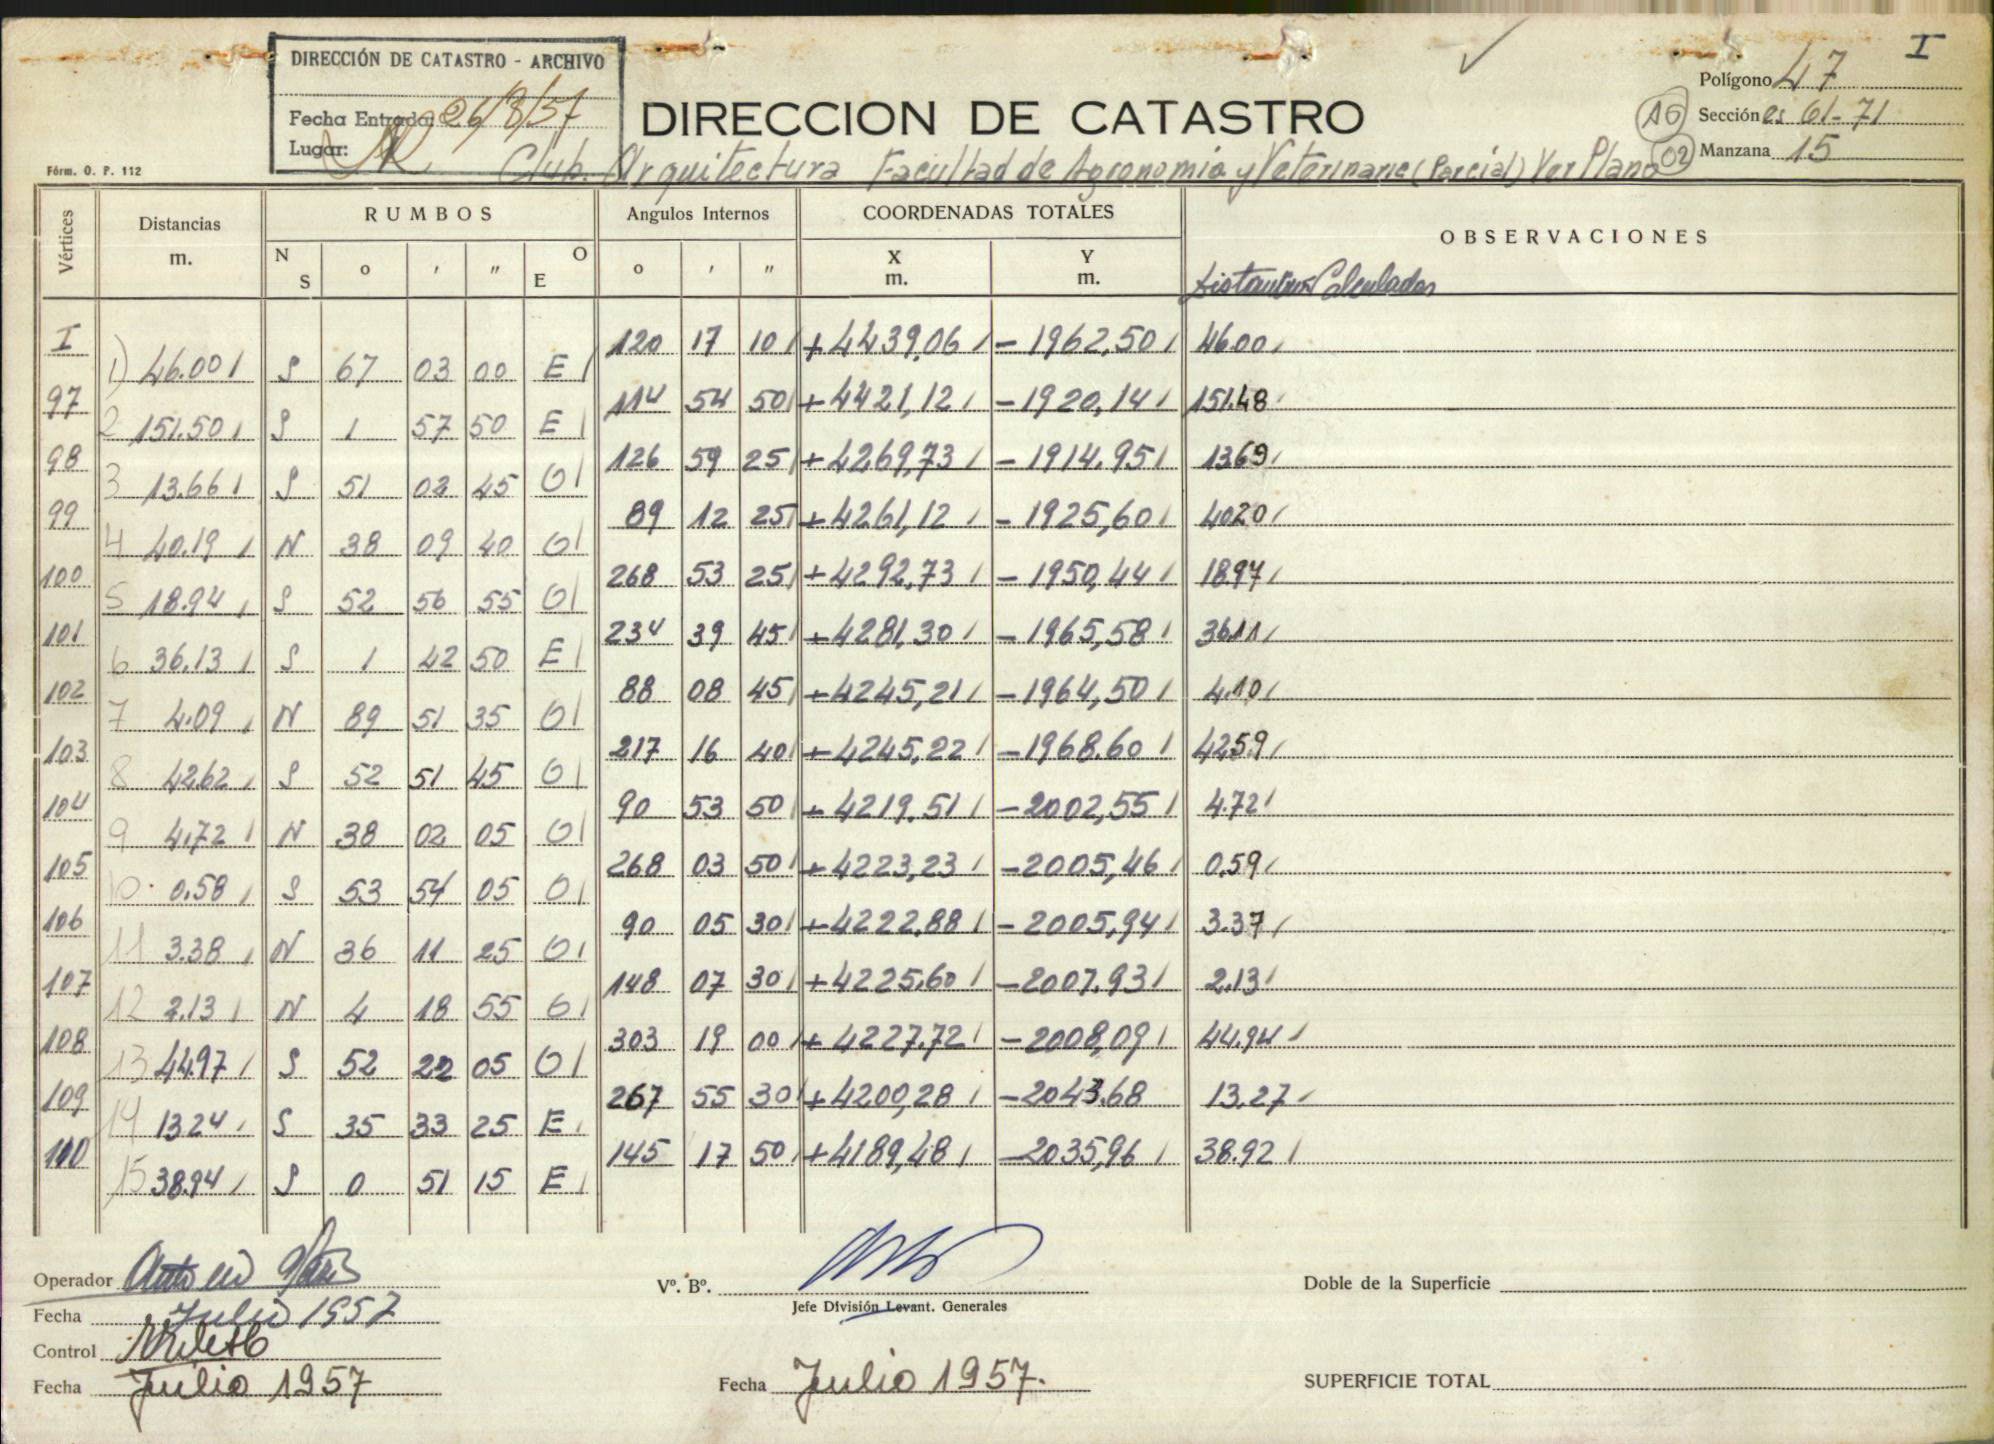 I
DIRECCIÓN DE CATASTRO - ARCHIVO
Fecha Entrada: 26/8/57
Lugar:
DIRECCION DE CATASTRO
Polígono 47
AG Sección es 61-71
02 Manzana 15
Fórm. O. P. 112
Club. Arquitectura Facultad de Agronomia y Veterinarie (Parcial) Ver Plano
Vértices Distancias m. RUMBOS Angulos Internos COORDENADAS TOTALES OBSERVACIONES
N S o ' " O E o ' " X m. Y m.
Distancias Calculadas
I 120 17 10 +4439,06 -1962,50 46.00
1) 46.00 S 67 03 00 E
97 114 54 50 +4421,12 -1920,14 151.48
2 151.50 S 1 57 50 E
98 126 59 25 +4269,73 -1914.95 13.69
3 13.66 S 51 02 45 O
99 89 12 25 +4261,12 -1925,60 40.20
4 40.19 N 38 09 40 O
100 268 53 25 +4292,73 -1950,44 18.97
5 18.94 S 52 56 55 O
101 234 39 45 +4281,30 -1965,58 36.11
6 36.13 S 1 42 50 E
102 88 08 45 +4245,21 -1964,50 4.10
7 4.09 N 89 51 35 O
103 217 16 40 +4245,22 -1968.60 42.59
8 42.62 S 52 51 45 O
104 90 53 50 +4219,51 -2002,55 4.72
9 4.72 N 38 02 05 O
105 268 03 50 +4223,23 -2005,46 0.59
10 0.58 S 53 54 05 O
106 90 05 30 +4222,88 -2005,94 3.37
11 3.38 N 36 11 25 O
107 148 07 30 +4225,60 -2007.93 2.13
12 2.13 N 4 18 55 O
108 303 19 00 +4227,72 -2008,09 44.94
13 44.97 S 52 22 05 O
109 267 55 30 +4200,28 -2043.68 13.27
14 13.24 S 35 33 25 E
110 145 17 50 +4189,48 -2035,96 38.92
15 38.94 S 0 51 15 E
Operador Antonio
Fecha Julio 1957
Control
Fecha Julio 1957
Vº. Bº.
Jefe División Levant. Generales
Fecha Julio 1957.
Doble de la Superficie
SUPERFICIE TOTAL